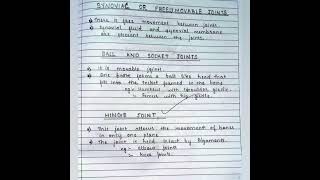 SYNOVIAL OR FREELY MOVABLE JOINTS
• There is free movement between joints.
• Synovial fluid and synovial membrane
are present between the joints.
BALL AND SOCKET JOINTS
• It is movable joint.
• One bone forms a ball like head that
fits into the socket formed in the bone.
eg:- Humerus with shoulder girdle.
:- Femur with hip girdle.
HINGE JOINT
• This joint allows the movement of bones
in only one plane.
• The joint is held intact by ligaments.
eg:- elbow joint
:- knee joint.